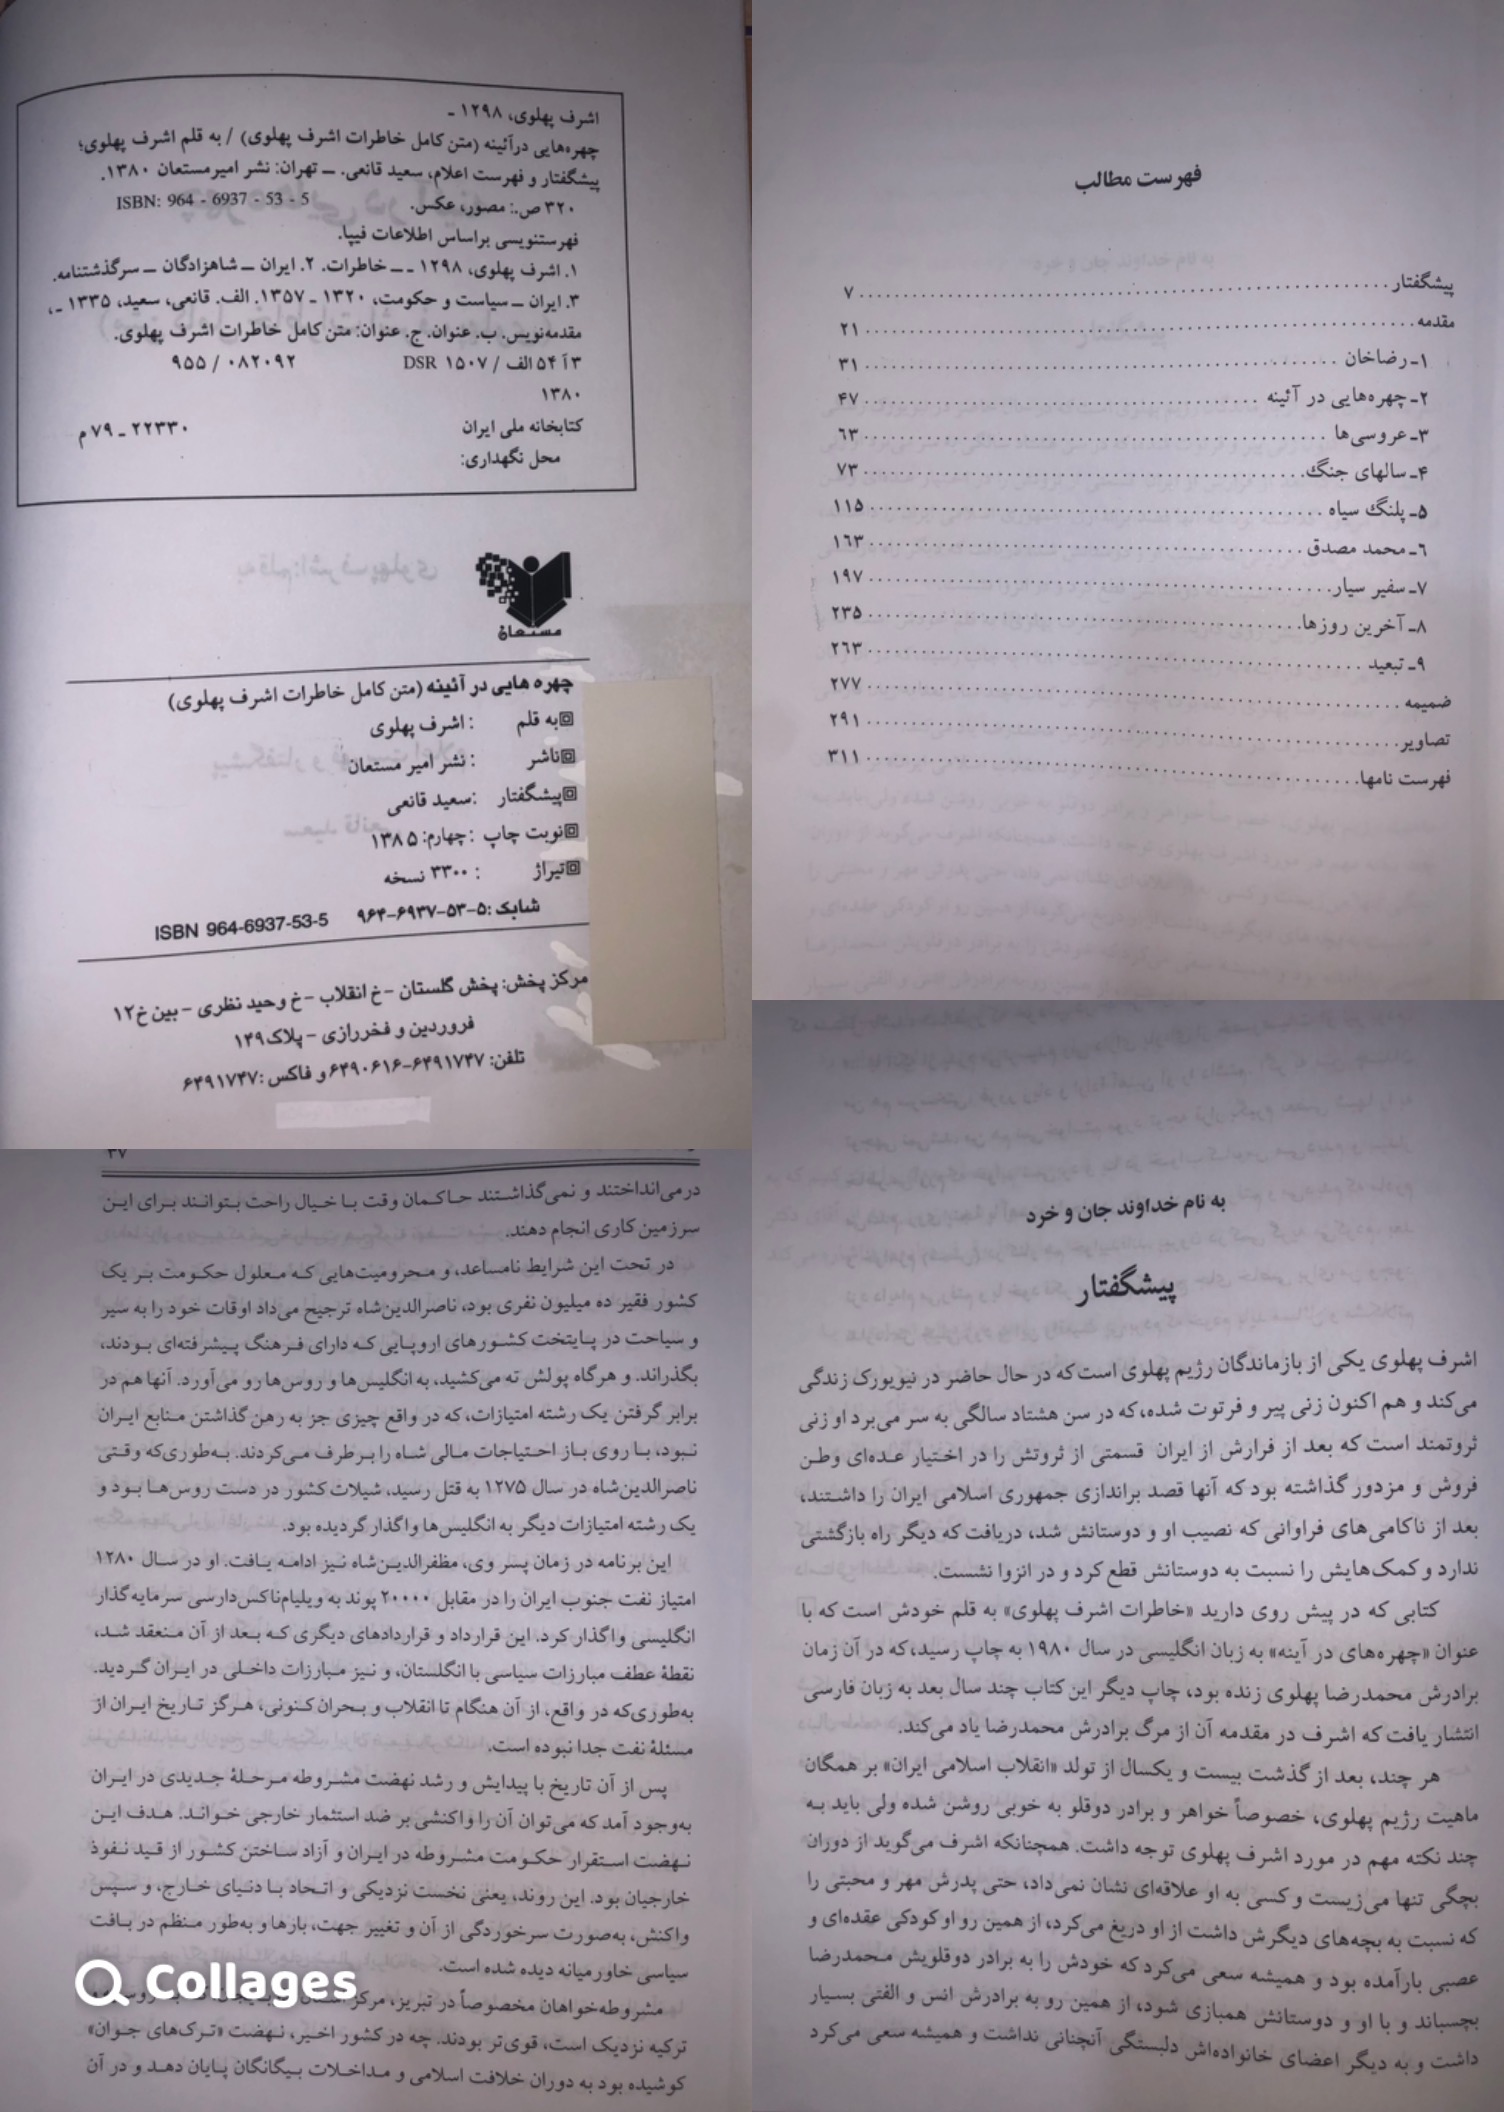 اشرف پهلوی، ۱۲۹۸ ـ
چهره‌هایی درآئینه (متن کامل خاطرات اشرف پهلوی) / به قلم اشرف پهلوی؛
پیشگفتار و فهرست اعلام، سعید قانعی. ــ تهران: نشر امیرمستعان ۱۳۸۰.
۳۲۰ ص.: مصور، عکس. ISBN: 964 - 6937 - 53 - 5
فهرستنویسی براساس اطلاعات فیپا.
۱. اشرف پهلوی، ۱۲۹۸ ـ ــ خاطرات. ۲. ایران ــ شاهزادگان ــ سرگذشتنامه.
۳. ایران ــ سیاست و حکومت، ۱۳۲۰ ـ ۱۳۵۷. الف. قانعی، سعید، ۱۳۳۵ ـ،
مقدمه‌نویس. ب. عنوان. ج. عنوان: متن کامل خاطرات اشرف پهلوی.
۳ آ ۵۴ الف / ۱۵۰۷ DSR ۹۵۵ / ۰۸۲۰۹۲
۱۳۸۰
کتابخانه ملی ایران ۲۲۳۳۰ ـ ۷۹ م
محل نگهداری:
مستعان
چهره هایی در آئینه (متن کامل خاطرات اشرف پهلوی)
به قلم : اشرف پهلوی
ناشر : نشر امیر مستعان
پیشگفتار :سعید قانعی
نوبت چاپ :چهارم: ۱۳۸۵
تیراژ : ۳۳۰۰ نسخه
شابک :۵-۵۳-۶۹۳۷-۹۶۴ ISBN 964-6937-53-5
مرکز پخش: پخش گلستان - خ انقلاب - خ وحید نظری - بین خ ۱۲
فروردین و فخررازی - پلاک ۱۴۹
تلفن: ۶۴۹۱۷۴۷-۶۴۹۰۶۱۶ و فاکس :۶۴۹۱۷۴۷
فهرست مطالب
پیشگفتار ۷
مقدمه ۲۱
۱ـ رضاخان ۳۱
۲ـ چهره‌هایی در آئینه ۴۷
۳ـ عروسی‌ها ۶۳
۴ـ سالهای جنگ ۷۳
۵ـ پلنگ سیاه ۱۱۵
۶ـ محمد مصدق ۱۶۳
۷ـ سفیر سیار ۱۹۷
۸ـ آخرین روزها ۲۳۵
۹ـ تبعید ۲۶۳
ضمیمه ۲۷۷
تصاویر ۲۹۱
فهرست نامها ۳۱۱
۳۷
درمی‌انداختند و نمی‌گذاشتند حاکمان وقت با خیال راحت بتوانند برای این
سرزمین کاری انجام دهند.
در تحت این شرایط نامساعد، و محرومیت‌هایی که معلول حکومت بر یک
کشور فقیر ده میلیون نفری بود، ناصرالدین‌شاه ترجیح می‌داد اوقات خود را به سیر
و سیاحت در پایتخت کشورهای اروپایی که دارای فرهنگ پیشرفته‌ای بودند،
بگذراند. و هرگاه پولش ته می‌کشید، به انگلیس‌ها و روس‌ها رو می‌آورد. آنها هم در
برابر گرفتن یک رشته امتیازات، که در واقع چیزی جز به رهن گذاشتن منابع ایران
نبود، با روی باز احتیاجات مالی شاه را برطرف می‌کردند. به‌طوری‌که وقتی
ناصرالدین‌شاه در سال ۱۲۷۵ به قتل رسید، شیلات کشور در دست روس‌ها بود و
یک رشته امتیازات دیگر به انگلیس‌ها واگذار گردیده بود.
این برنامه در زمان پسر وی، مظفرالدین‌شاه نیز ادامه یافت. او در سال ۱۲۸۰
امتیاز نفت جنوب ایران را در مقابل ۲۰۰۰۰ پوند به ویلیام‌ناکس‌دارسی سرمایه‌گذار
انگلیسی واگذار کرد. این قرارداد و قراردادهای دیگری که بعد از آن منعقد شد،
نقطهٔ عطف مبارزات سیاسی با انگلستان، و نیز مبارزات داخلی در ایران گردید.
به‌طوری‌که در واقع، از آن هنگام تا انقلاب و بحران کنونی، هرگز تاریخ ایران از
مسئلهٔ نفت جدا نبوده است.
پس از آن تاریخ با پیدایش و رشد نهضت مشروطه مرحلهٔ جدیدی در ایران
به‌وجود آمد که می‌توان آن را واکنشی بر ضد استثمار خارجی خواند. هدف این
نهضت استقرار حکومت مشروطه در ایران و آزاد ساختن کشور از قید نفوذ
خارجیان بود. این روند، یعنی نخست نزدیکی و اتحاد با دنیای خارج، و سپس
واکنش، به‌صورت سرخوردگی از آن و تغییر جهت، بارها و به‌طور منظم در بافت
سیاسی خاورمیانه دیده شده است.
مشروطه‌خواهان مخصوصاً در تبریز، مرکز
ترکیه نزدیک است، قوی‌تر بودند. چه در کشور اخیر، نهضت «ترک‌های جوان»
کوشیده بود به دوران خلافت اسلامی و مداخلات بیگانگان پایان دهد و در آن
Collages
به نام خداوند جان و خرد
پیشگفتار
اشرف پهلوی یکی از بازماندگان رژیم پهلوی است که در حال حاضر در نیویورک زندگی
می‌کند و هم اکنون زنی پیر و فرتوت شده، که در سن هشتاد سالگی به سر می‌برد او زنی
ثروتمند است که بعد از فرارش از ایران قسمتی از ثروتش را در اختیار عده‌ای وطن
فروش و مزدور گذاشته بود که آنها قصد براندازی جمهوری اسلامی ایران را داشتند،
بعد از ناکامی‌های فراوانی که نصیب او و دوستانش شد، دریافت که دیگر راه بازگشتی
ندارد و کمک‌هایش را نسبت به دوستانش قطع کرد و در انزوا نشست.
کتابی که در پیش روی دارید «خاطرات اشرف پهلوی» به قلم خودش است که با
عنوان «چهره‌های در آینه» به زبان انگلیسی در سال ۱۹۸۰ به چاپ رسید، که در آن زمان
برادرش محمدرضا پهلوی زنده بود، چاپ دیگر این کتاب چند سال بعد به زبان فارسی
انتشار یافت که اشرف در مقدمه آن از مرگ برادرش محمدرضا یاد می‌کند.
هر چند، بعد از گذشت بیست و یکسال از تولد «انقلاب اسلامی ایران» بر همگان
ماهیت رژیم پهلوی، خصوصاً خواهر و برادر دوقلو به خوبی روشن شده ولی باید به
چند نکته مهم در مورد اشرف پهلوی توجه داشت. همچنانکه اشرف می‌گوید از دوران
بچگی تنها می‌زیست و کسی به او علاقه‌ای نشان نمی‌داد، حتی پدرش مهر و محبتی را
که نسبت به بچه‌های دیگرش داشت از او دریغ می‌کرد، از همین رو او کودکی عقده‌ای و
عصبی بارآمده بود و همیشه سعی می‌کرد که خودش را به برادر دوقلویش محمدرضا
بچسباند و با او و دوستانش همبازی شود، از همین رو به برادرش انس و الفتی بسیار
داشت و به دیگر اعضای خانواده‌اش دلبستگی آنچنانی نداشت و همیشه سعی می‌کرد